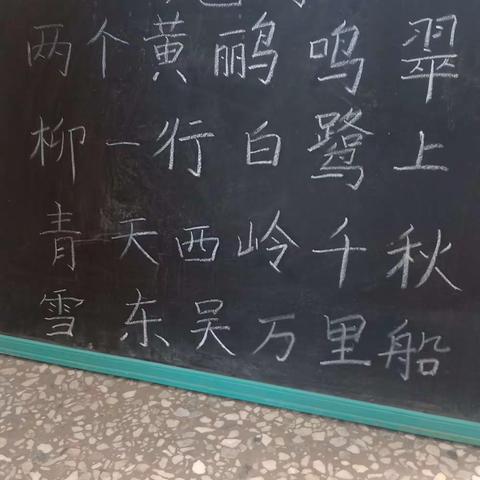 两个黄鹂鸣翠
柳一行白鹭上
青天西岭千秋
雪东吴万里船